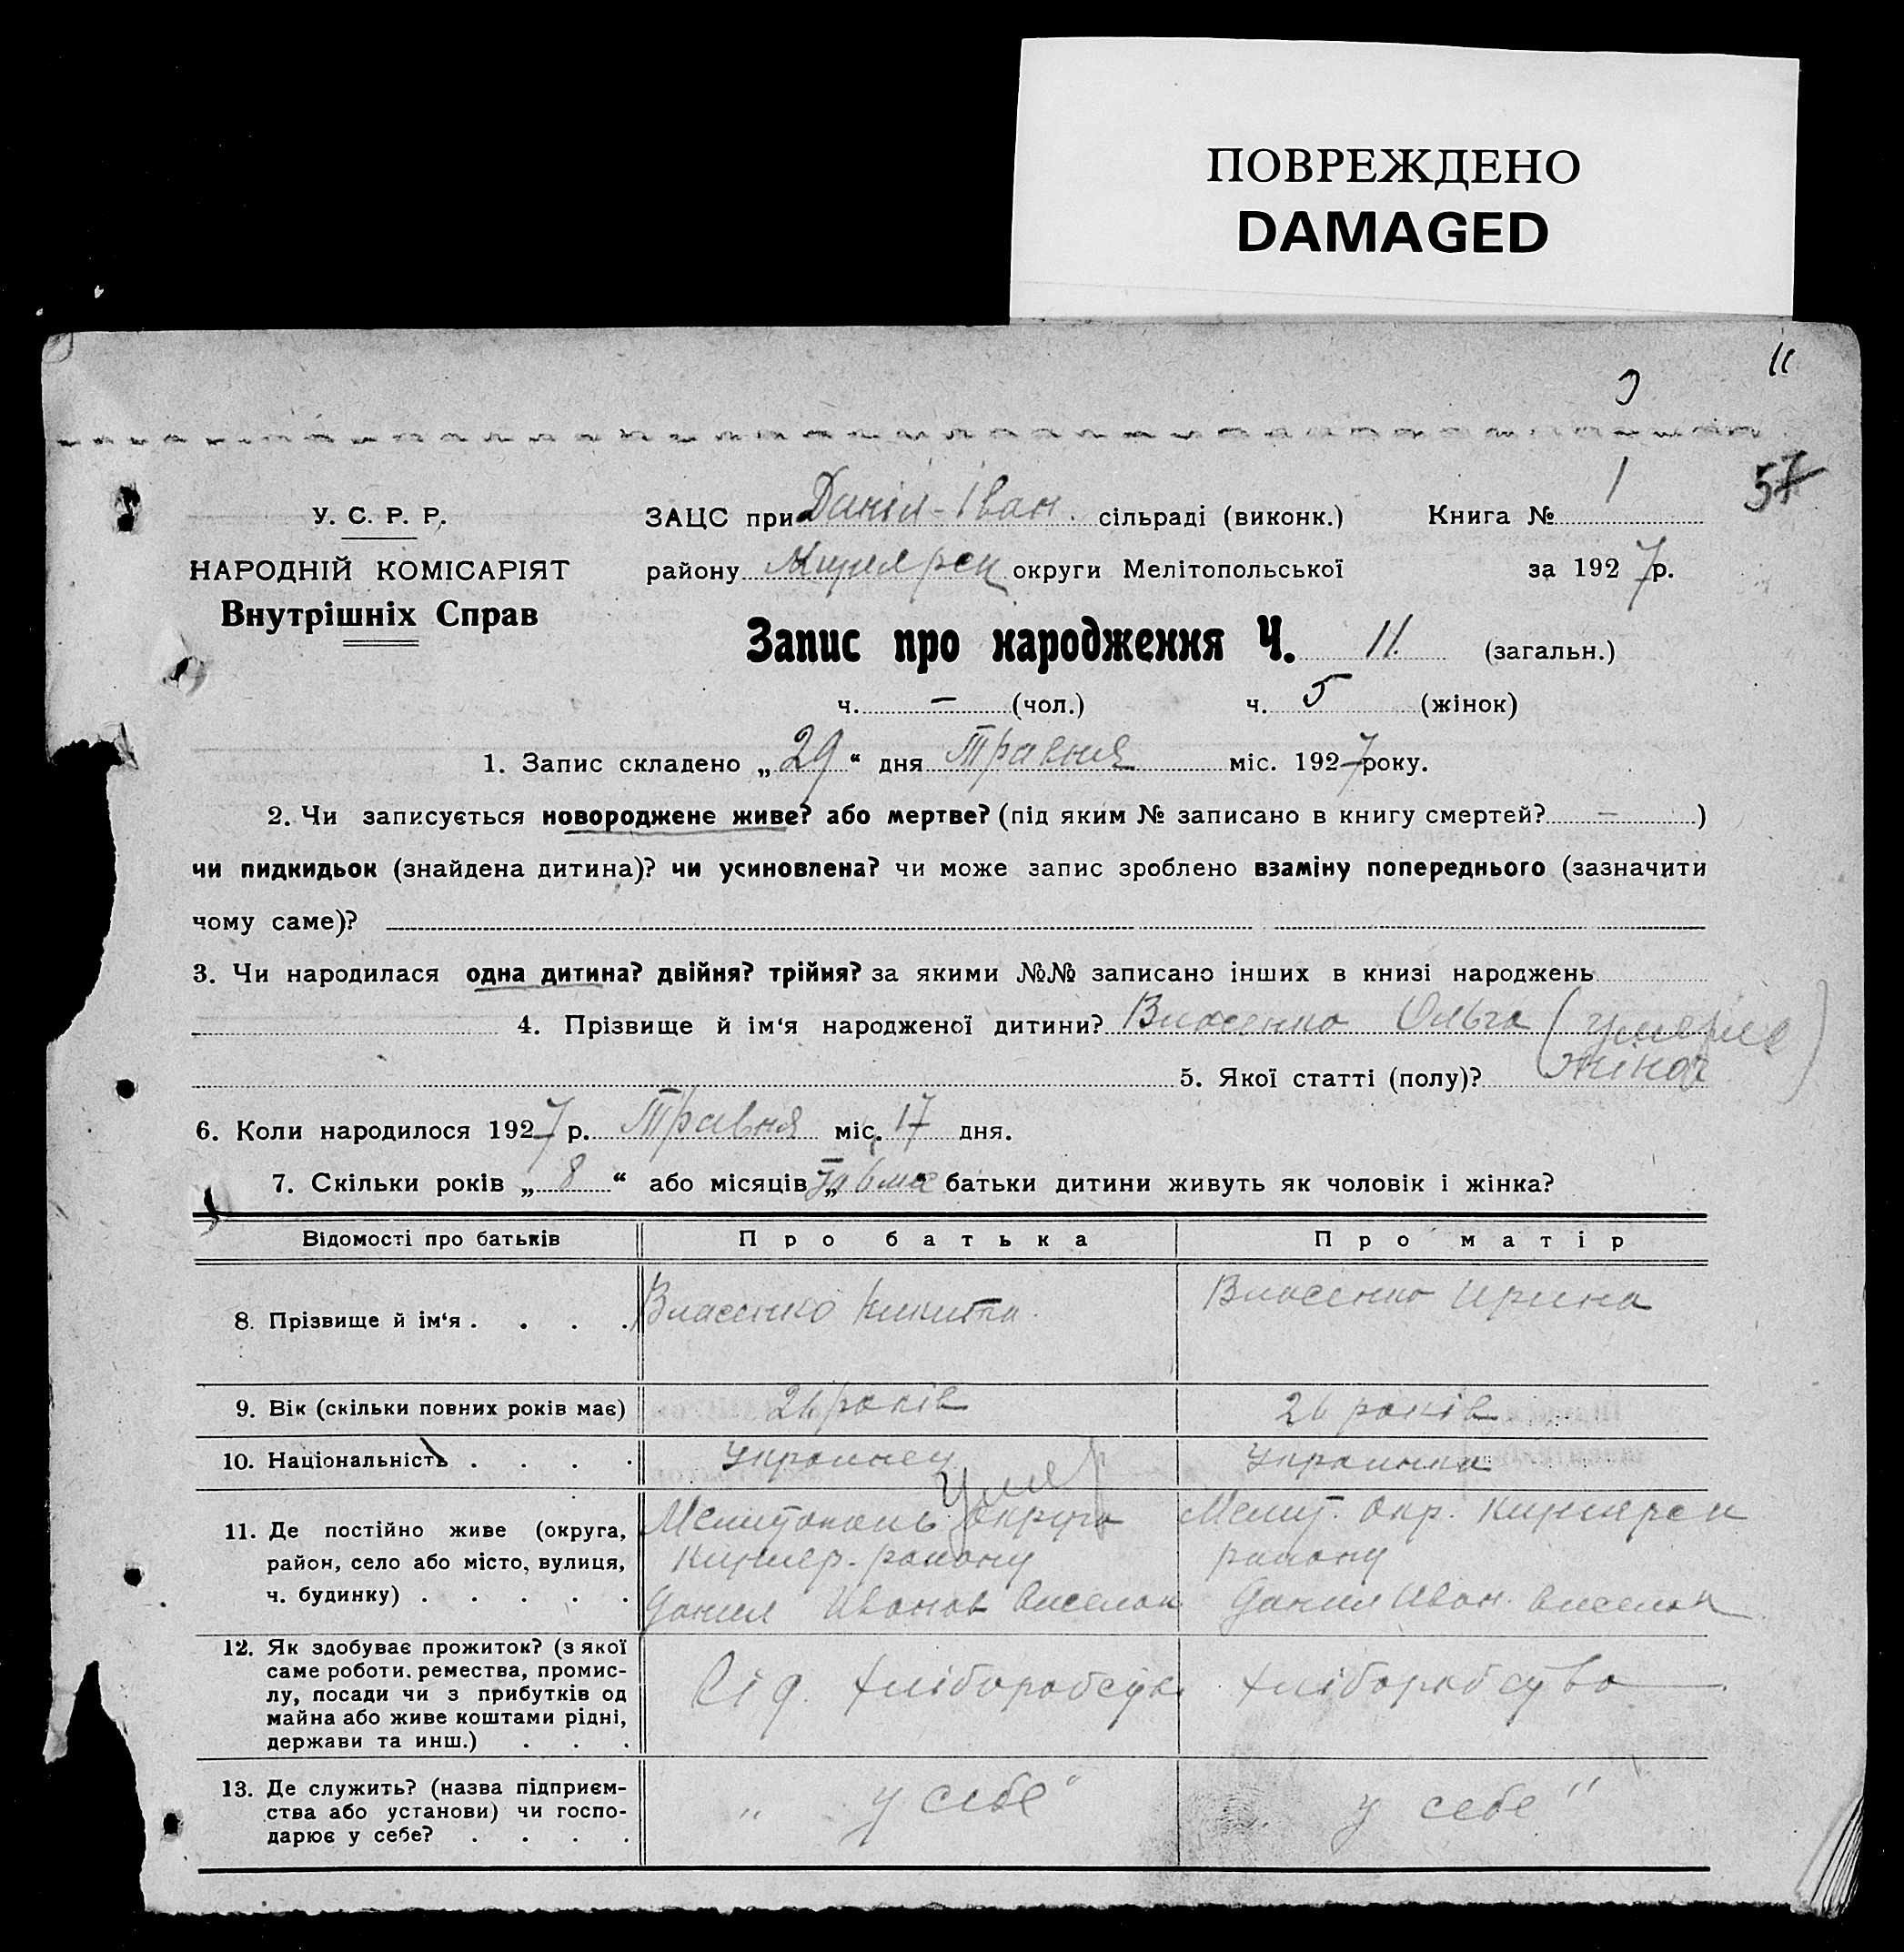 ПОВРЕЖДЕНО
DAMAGED
11
57
У. С. Р. Р.
НАРОДНІЙ КОМІСАРІЯТ
Внутрішніх Справ
ЗАЦС при Даніл-Іван. сільраді (виконк.) Книга № 1
району округи Мелітопольської за 1927 р.
Запис про народження Ч. 11. (загальн.)
ч. – (чол.) ч. 5 (жінок)
1. Запис складено „29“ дня Травня міс. 1927 року.
2. Чи записується новороджене живе? або мертве? (під яким № записано в книгу смертей? — )
чи пидкидьок (знайдена дитина)? чи усиновлена? чи може запис зроблено взаміну попереднього (зазначити
чому саме)?
3. Чи народилася одна дитина? двійня? трійня? за якими №№ записано інших в книзі народжень
4. Прізвище й ім‘я народженої дитини? Власенко Ольга (умерле)
5. Якої статті (полу)? жіноч
6. Коли народилося 1927 р. Травня міс. 17 дня.
7. Скільки років „8“ або місяців „ “ батьки дитини живуть як чоловік і жінка?
Відомості про батьків Про батька Про матір
8. Прізвище й ім‘я . . . . Власенко Никита Власенко Ирина
9. Вік (скільки повних років має) 26 років 26 років
10. Національність . . . . Украинец Украинка
умер
11. Де постійно живе (округа, Мелитополь округа Мелит. Окр. Кизиярск
район, село або місто, вулиця, Кизияр. району району
ч. будинку) . . . . . Данил Иванов виселок Данил Иван. виселок
12. Як здобуває прожиток? (з якої
саме роботи, ремества, промис-
лу, посади чи з прибутків од
майна або живе коштами рідні,
держави та инш.) . . .
Від хліборобства хліборобства
13. Де служить? (назва підприєм-
ства або установи) чи госпо-
дарює у себе? . . . .
„ у себе“ у себе“